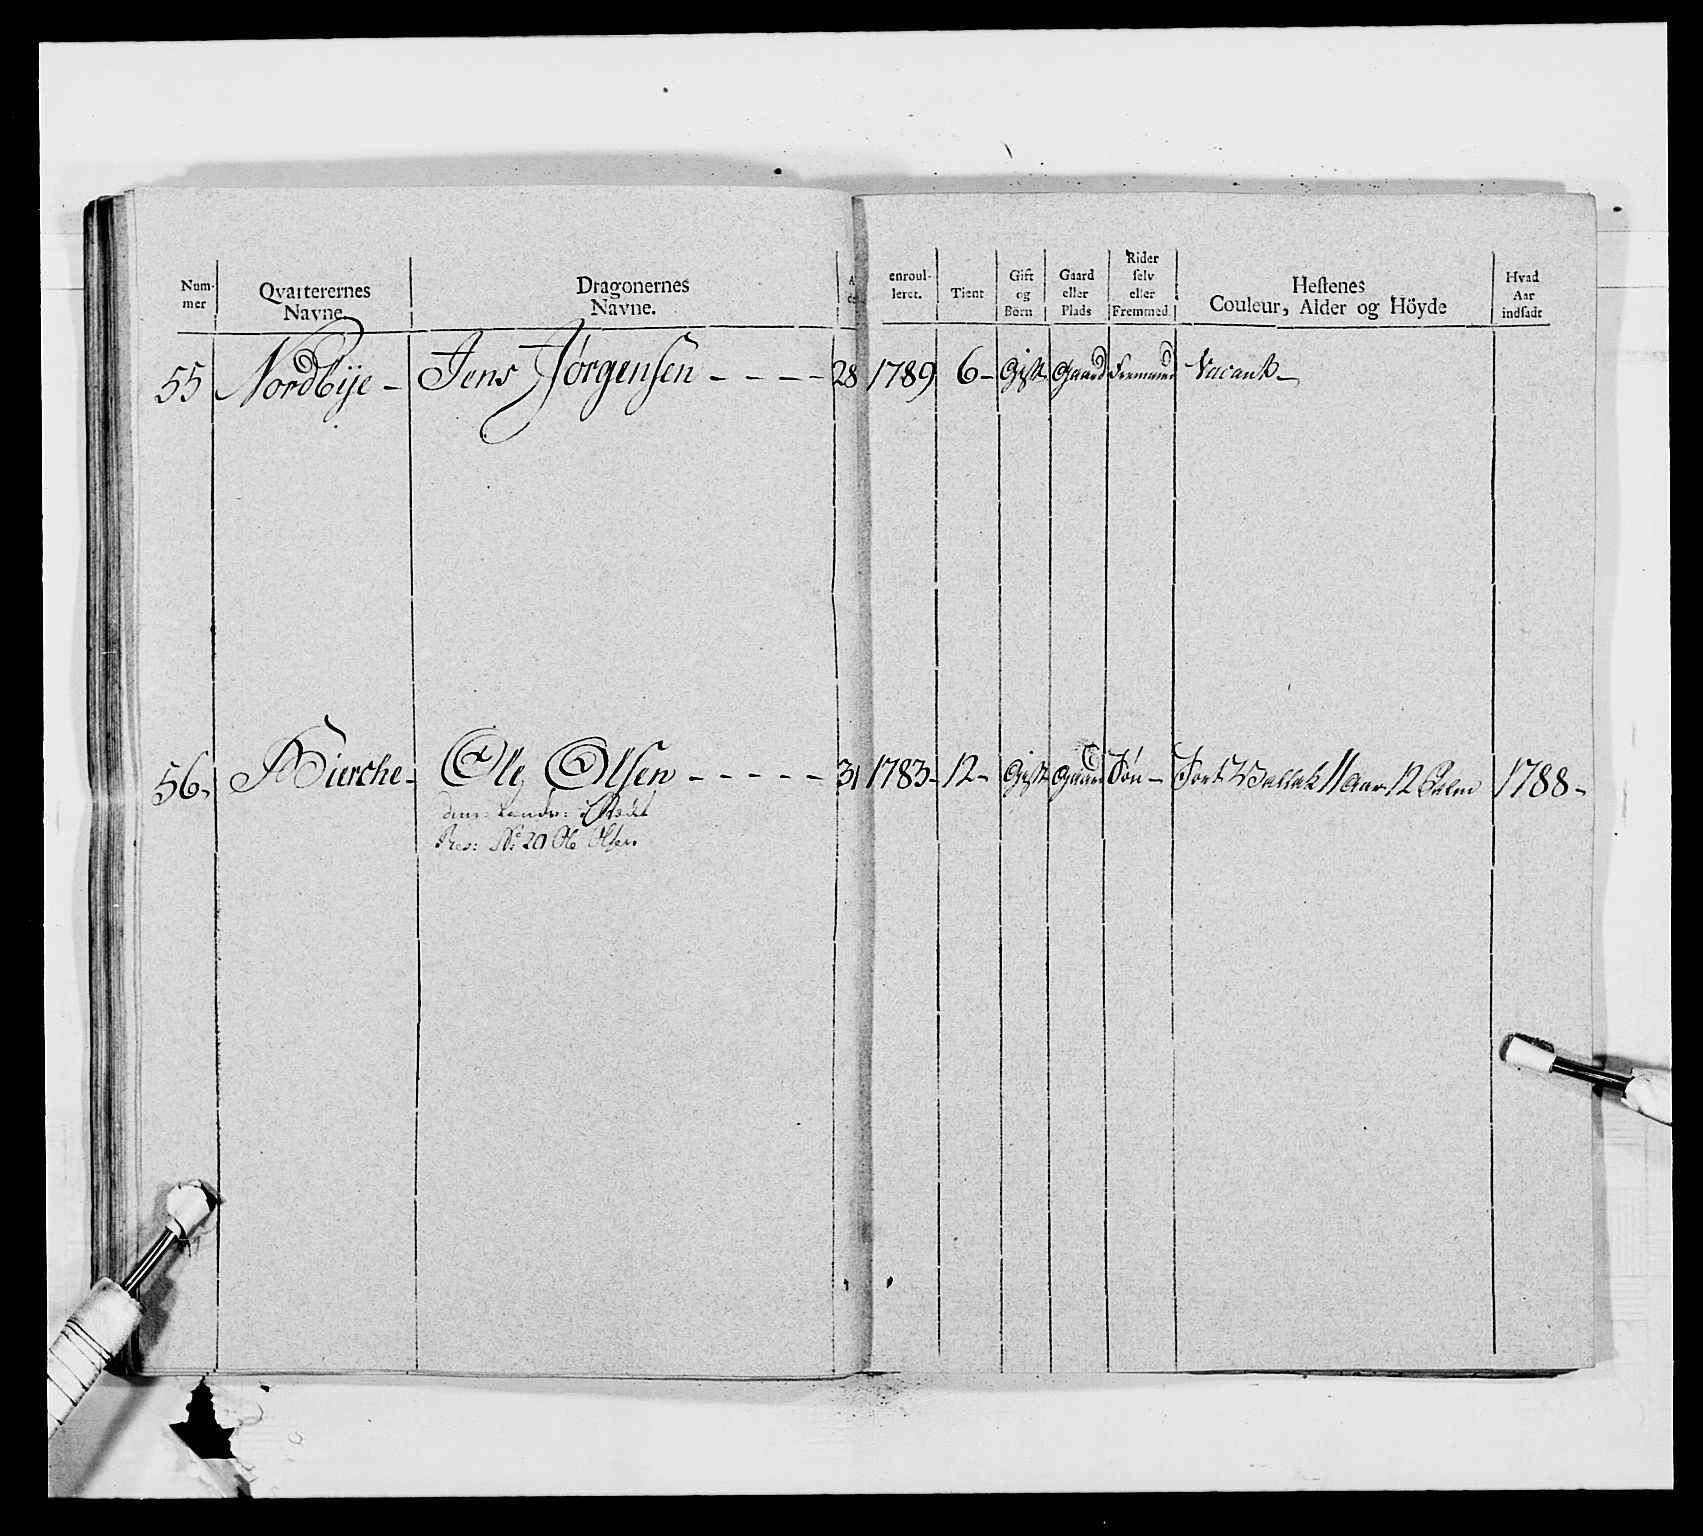 Num-
mer
Qvarterernes
Navne
Dragonernes
Navne.
enroul-
leret.
Tient
Gift
og
Börn
Gaard
eller
Plads
Rider
selv
eller
Fremmed.
Hestenes
Couleur, Alder og Höyde
Hvad
Aar
indsadt
55 Nordbÿe - Jens Jörgensen - - - - 28 1789 6 - Gift Gaard Fremmed Vacant -
56. Bierche - Ole Olsen - - - - - 31 1783 - 12 - Gift Gaard Søn - Sort Wallak 11 Aar 12 Palm 1788 -
Res: No: 20 Ole Olsen